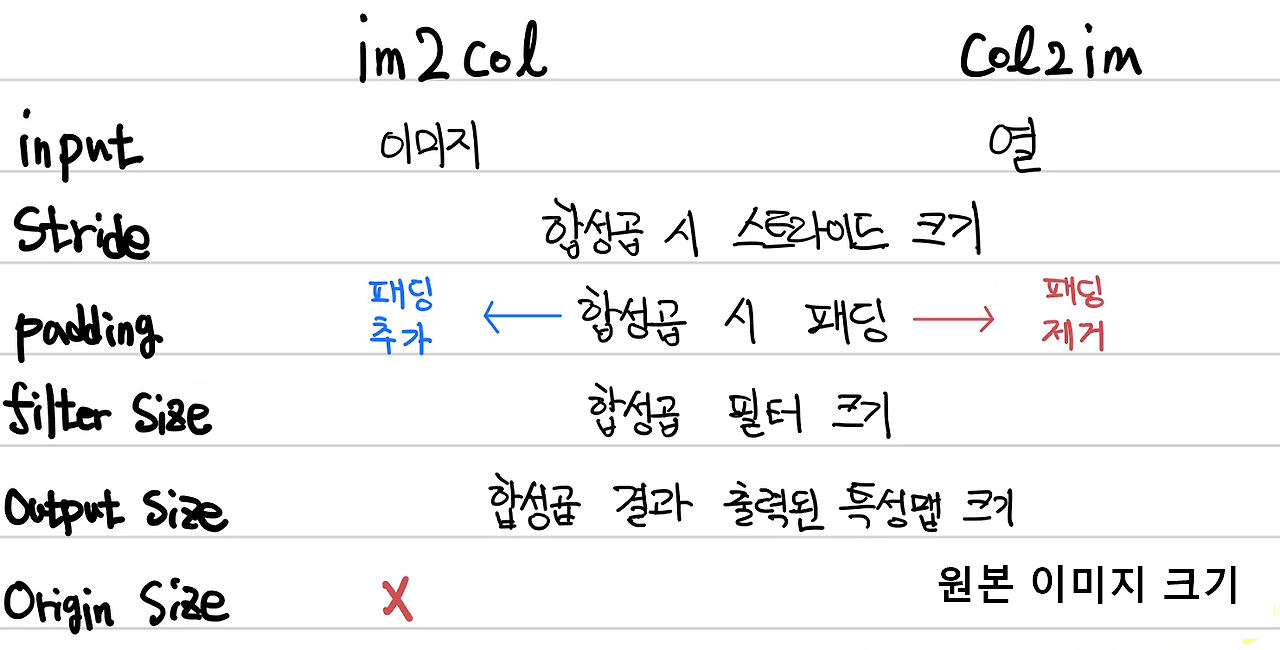 im2col col2im
input 이미지 열
Stride 합성곱 시 스트라이드 크기
padding 패딩 추가 ← 합성곱 시 패딩 → 패딩 제거
filter Size 합성곱 필터 크기
Output Size 합성곱 결과 출력된 특성맵 크기
Origin Size X 원본 이미지 크기